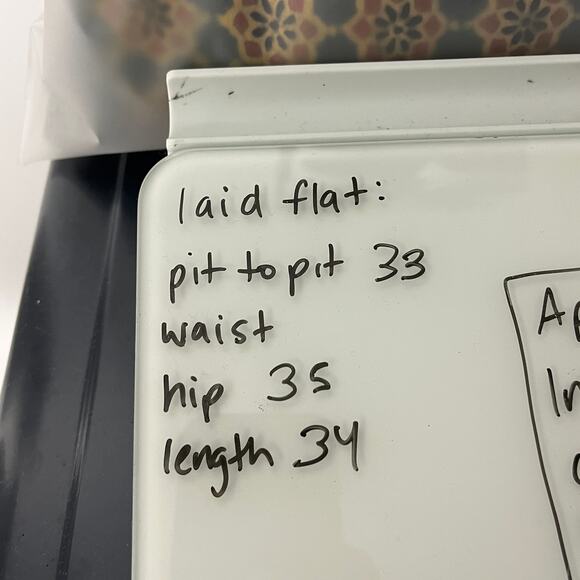 laid flat:
pit to pit 33
waist
hip 35
length 34